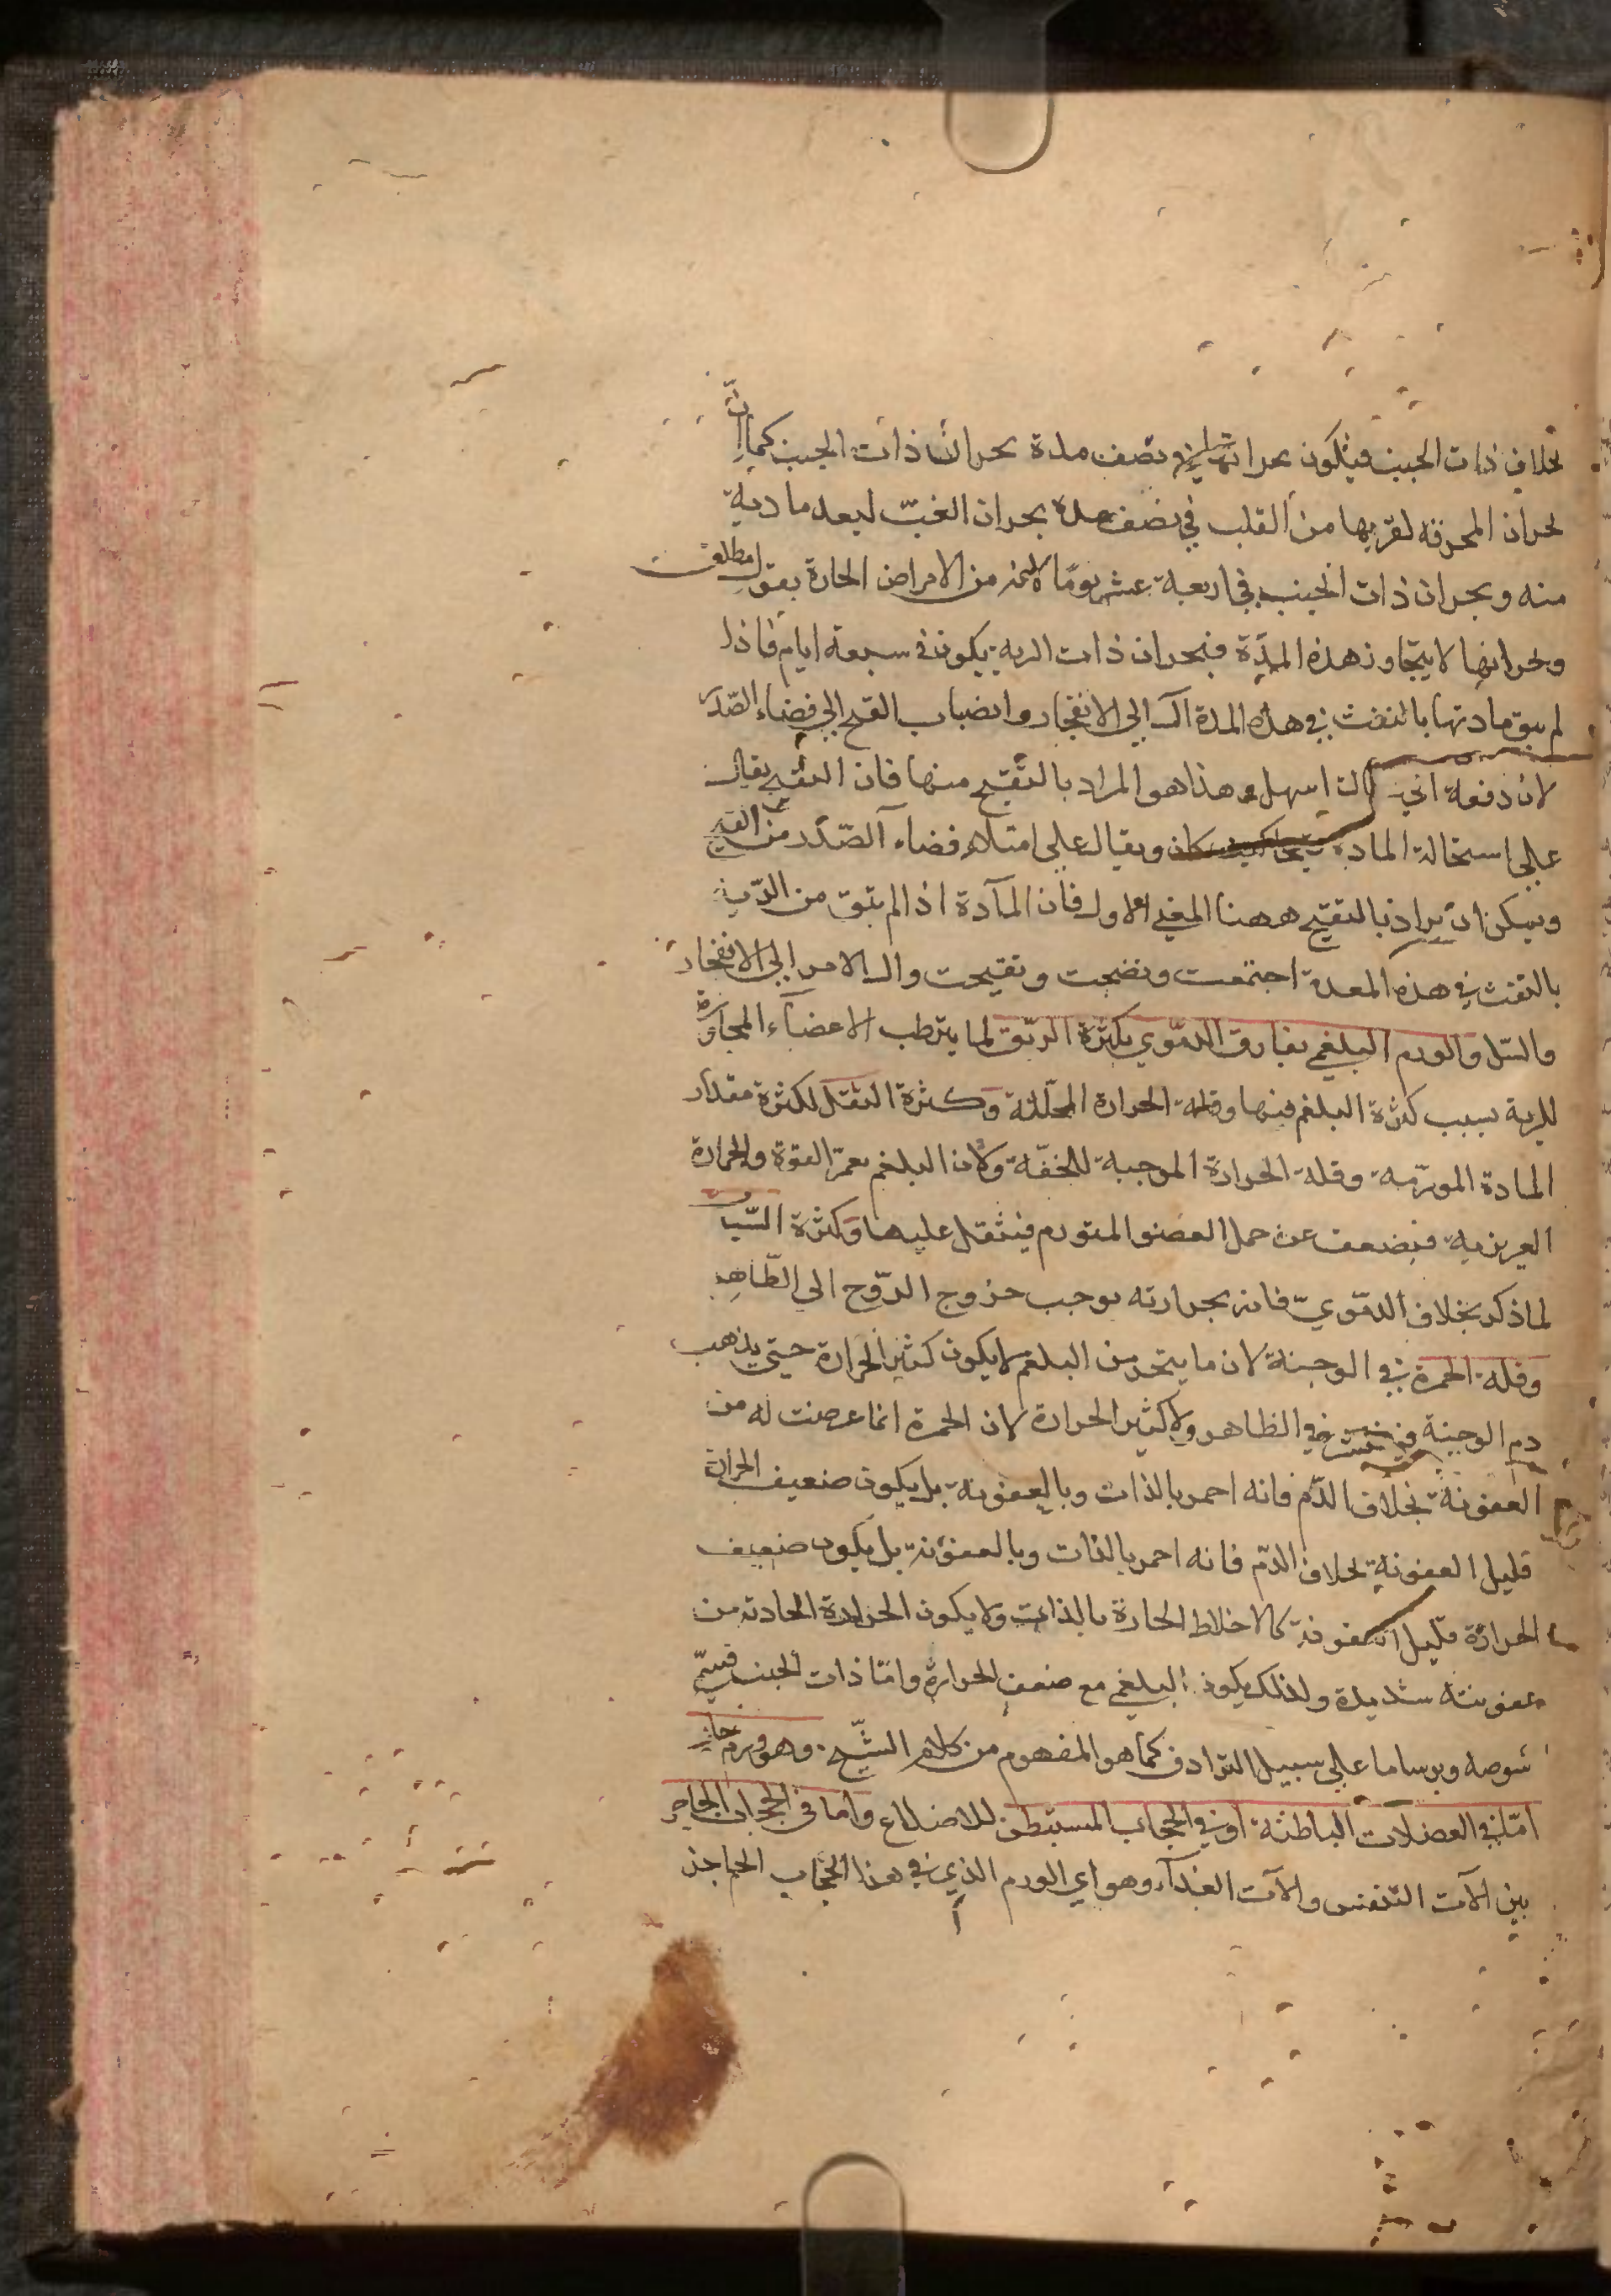 بخلاف ذات الجنب فيكون بحرانها في نصف مدة بحران ذات الجنب كما انّ
بحران المحرقة لقربها من القلب في نصف مدة بحران الغبّ لبعد مادته
منه وبحران ذات الجنب في اربعة عشر يومًا لانه من الامراض الحارة بقول مطلق
وبحرانها لا يتجاوز هذه المدّة فبحران ذات الرية يكون في سبعة ايام فاذا
لم ينق مادتها بالنفث في هذه المدة آل الي الانفجار وانصباب القيح الي فضاء الصّدر
لان دفعه اسهل وهذا هو المراد بالتقيح منها فان التقيح يقال
علي استحالة المادة ويقال علي امتلاء فضاء الصّدر من القيح
ويمكن ان يراد بالتقيح ههنا المعني الاول فان المآدة اذا لم تنق من الرّية
بالنفث في هذه المدة اجتمعت ونضجت وتقيحت وال الامر الي الانفجار
والسّل والورم البلغمي يفارق الدمّوي بكثرة الريّق لما يترطب الاعضاء المجاورة
للرية بسبب كثرة البلغم فيها وقلة الحرارة المحلّلة وكثرة الثقل لكثرة مقدار
المادة المورّمة وقلة الحرارة الموجبة للخفّة ولان البلغم يغمر القوة والحرارة
الغريزية فيضعف عن حمل العضو المتورم فيثقل عليها وكثرة السّبات
لما ذكر بخلاف الدمّويّ فانه بحرارته يوجب خروج الرّوح الي الظّاهر
وقلة الحمرة في الوجنة لان ما يتبخر من البلغم لا يكون كثير الحرارة حتي يذهب
دم الوجنة في الظاهر ولا كثير الحرارة لان الحمرة انما عرضت له من
العفونة بخلاف الدّم فانه احمر بالذات وبالعفونة بل يكون ضعيف الحرارة
قليل العفونة بخلاف الدّم فانه احمر بالذات وبالعفونة بل يكون ضعيف
الحرارة قليل العفونة كالاخلاط الحارة بالذات ولا يكون الحرارة الحادثة من
عفونته شديدة ولذلك يكون البلغمي مع ضعف الحرارة وامّا ذات الجنب فتسمّي
شوصة وبرساما علي سبيل الترادف كما هو المفهوم من كلام الشّيخ وهو ورم حار
امّا في العضلات الباطنة او في الحجاب المستبطن للاضلاع واما في الحجاب الحاجز
بين آلات التنفس وآلات الغذاء وهو اي الورم الذي في هذا الحجاب الحاجز